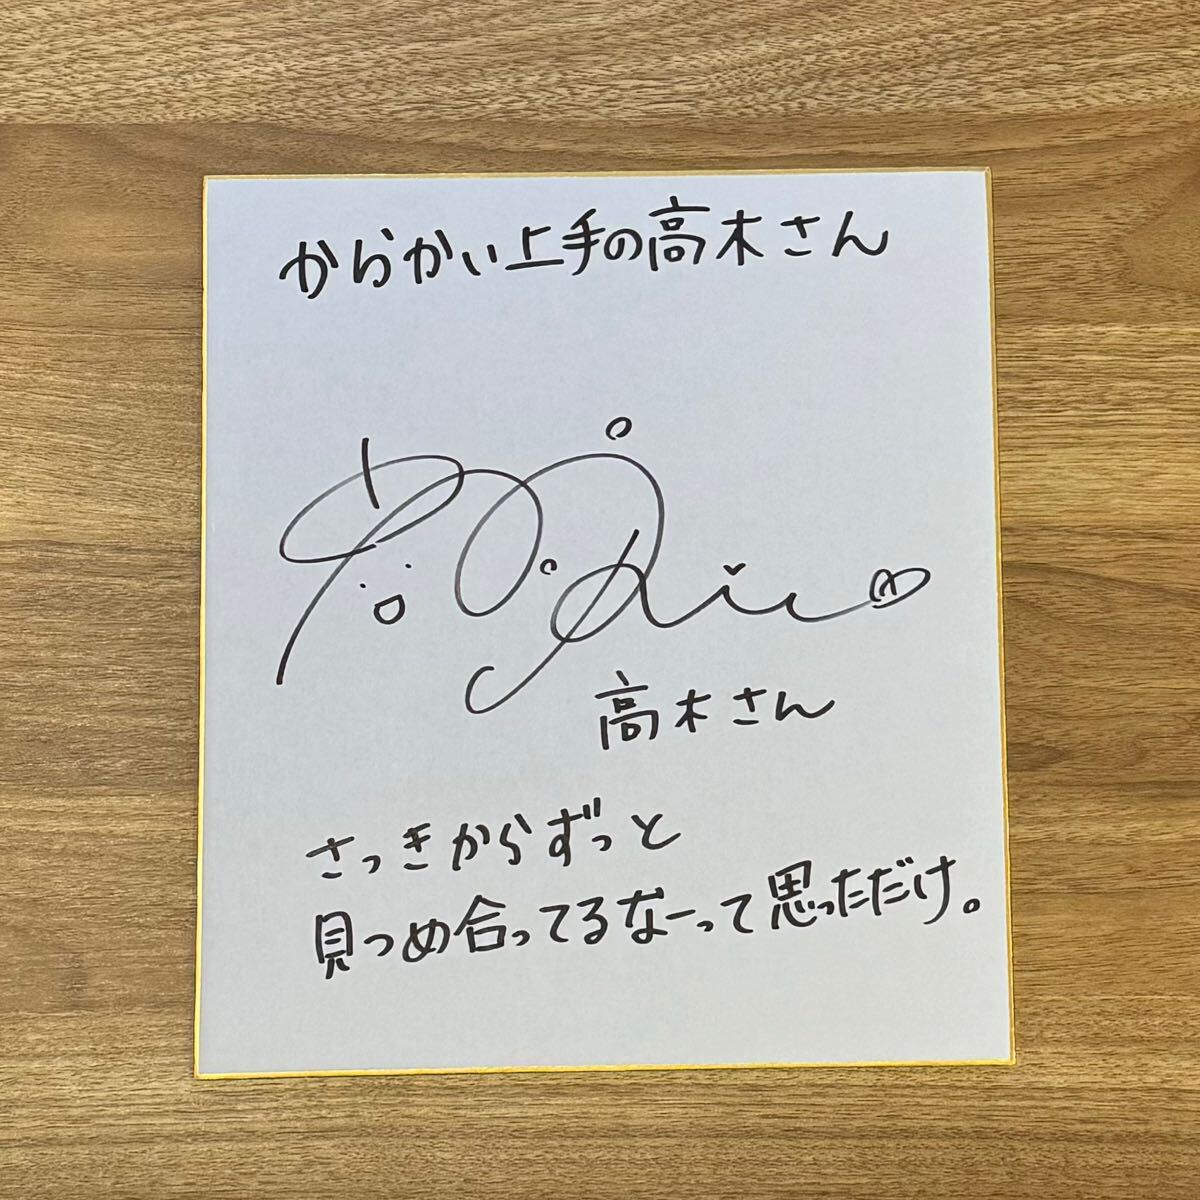 からかい上手の高木さん
高木さん
さっきからずっと
見つめ合ってるなーって思っただけ。